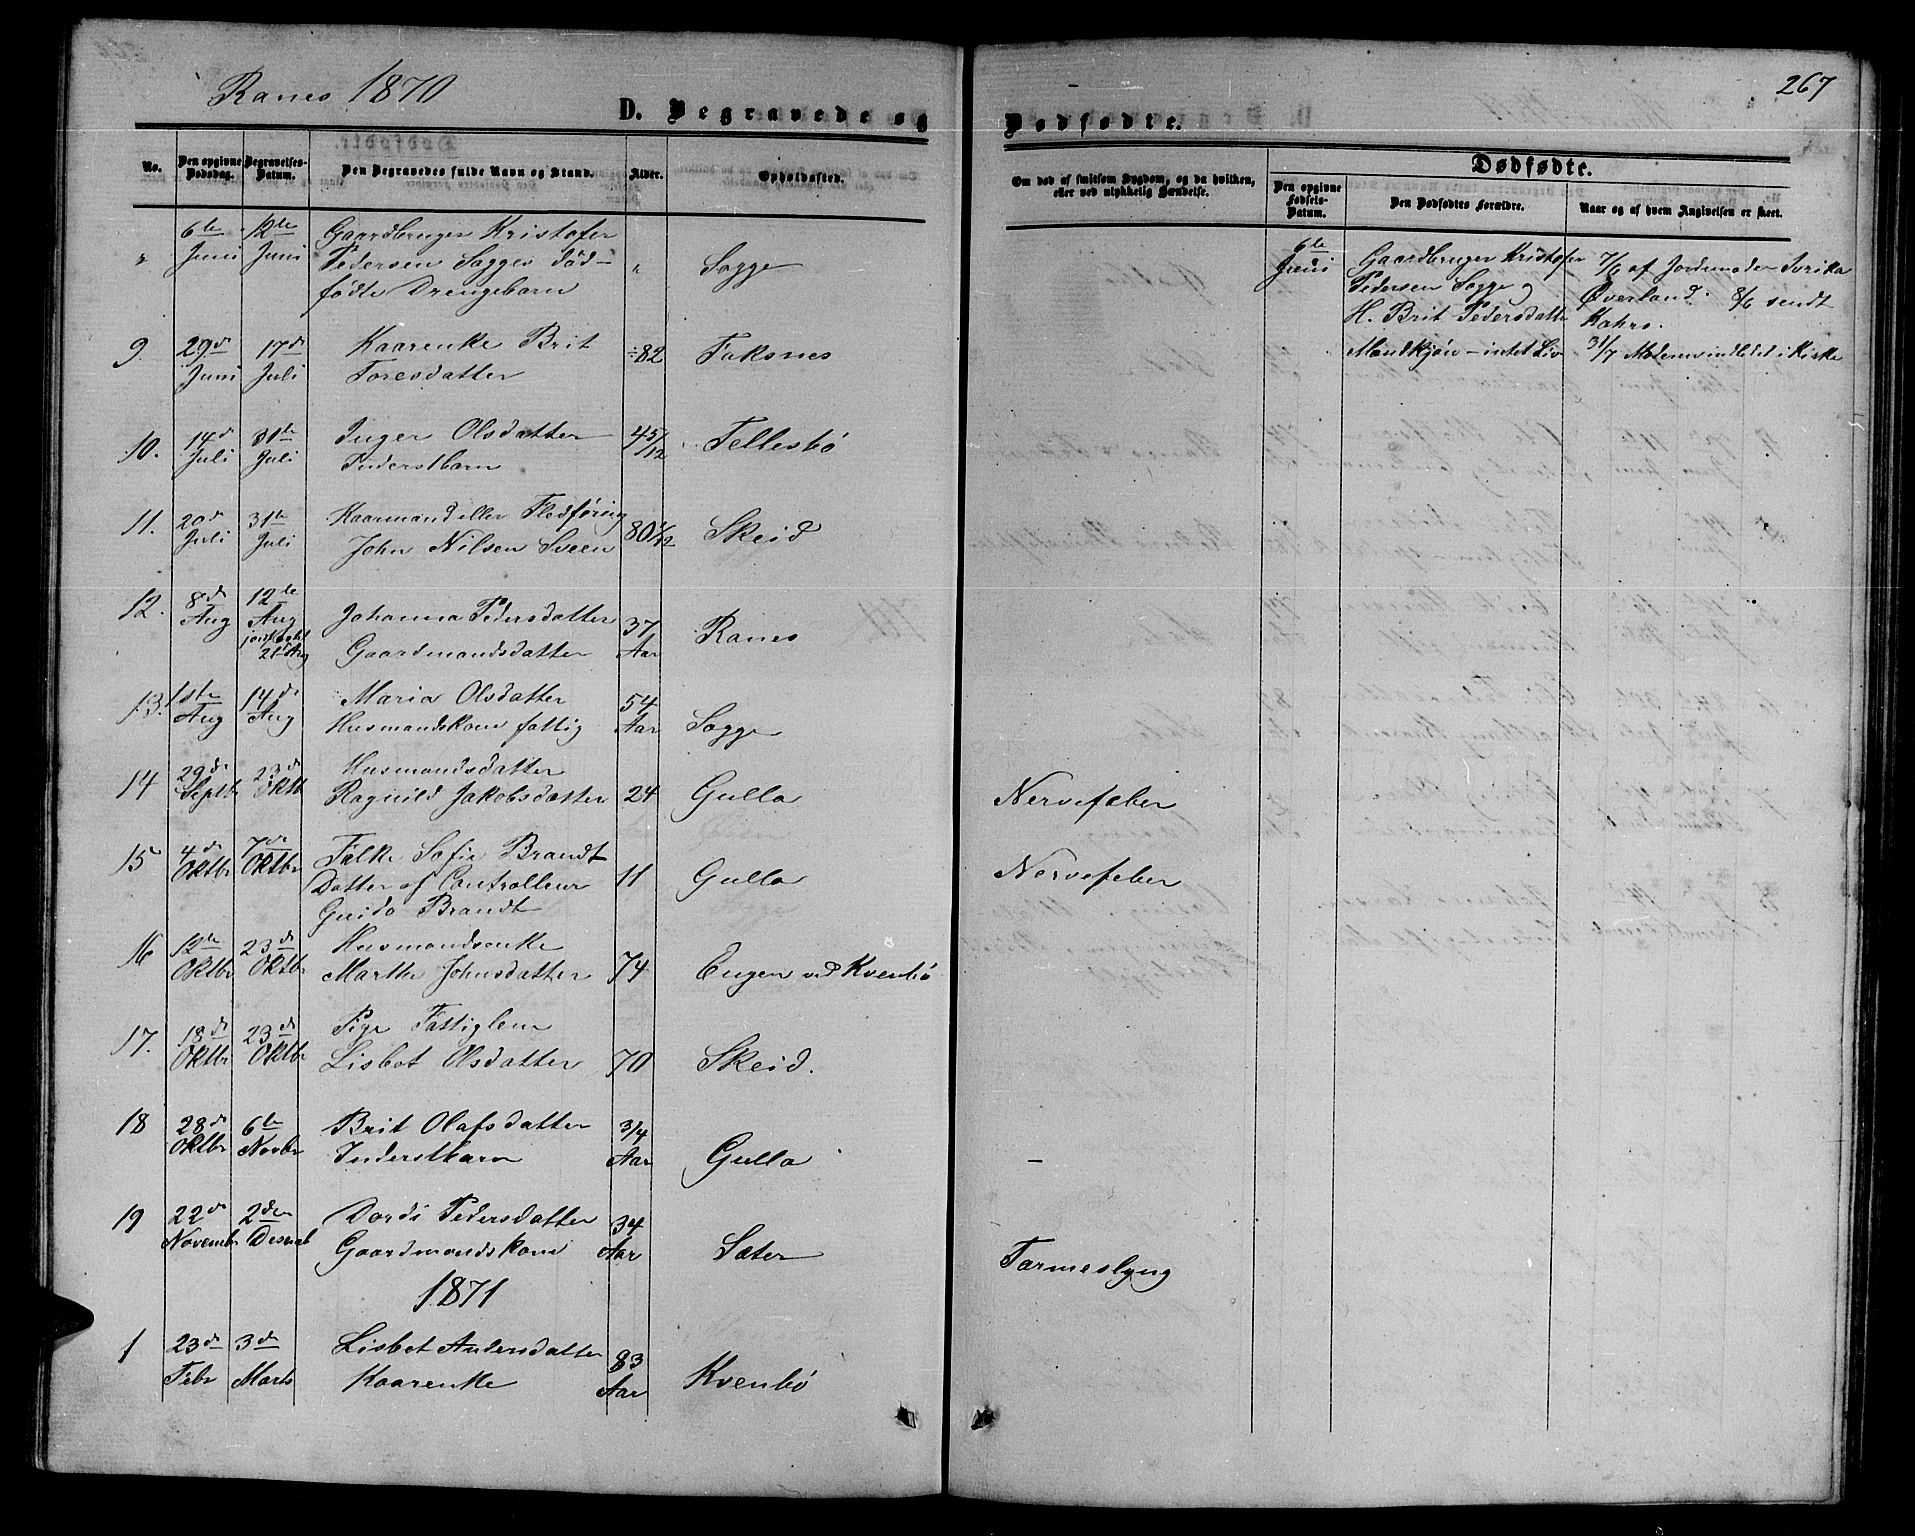 Ranes 1870
267
D. Begravede og
Dødfødte.
No.
Den opgivne Dødsdag.
Begravelses-Datum.
Den Begravedes fulde Navn og Stand.
Alder.
Opholdssted.
Om død af smitsom Sygdom, og da hvilken, eller ved ulykkelig Hændelse.
Dødfødte.
Den opgivne Fødsels-Datum.
Den Dødfødtes Forældre.
Naar og af hvem Angivelsen er skeet.
" 6te Juni 12te Juni Gaardbruger Kristofer
Pedersen Sogges død-
fødte Drengebarn " Sogge
6te Juni
Gaardbruger Kristofer
Pedersen Sogge og
H. Brit Pedersdatter
Mandkjøn - intet Liv
7/6 af Jordemoder
Øverland. 8/6 sendt
31/7 Moderen indledet i Kirke
9. 29de Juni 17de Juli Kaarenke Brit
Toresdatter 82 Foksnes
10. 14de Juli 31te Juli Inger Olsdatter
Inderstbarn 4 5/12 Tellesbø
11. 20de Juli 31te Juli Kaarmand eller Fledføring
John Nilsen Sveen 80 Skeid
12. 8de Aug 12te Aug
jordkastet 21de Aug
Johanna Pedersdatter
Gaardmandsdatter 37 Aar Ranes
13. 1ste Aug 14de Aug Maria Olsdatter
Husmandskone fattig 54 Aar Sogge
14 29de Septb 23de Oktb Husmandsdatter
Ragnild Jakobsdatter 24 Gulla Nervefeber
15 4de Oktbr 7de Oktbr Falke Sofie Brandt
Datter af Controlleur
Guido Brandt 11 Gulla Nervefeber
16 12te Oktbr 23de Oktbr Husmandsenke
Marthe Johnsdatter 74 Engen ved Kvenbø
17. 18de Oktbr 23de Oktbr Pige Fattiglem
Lisbet Olsdatter 70 Skeid.
18 28de Oktbr 6te Novbr Brit Olafsdatter
Inderstbarn 3/4 Aar Gulla -
19 22de Novembr 2den Desemb Dordi Pedersdatter
Gaardmandskone 34 Aar Sæter Tarmeslyng
1871
1 23de Febr 3de Marts Lisbet Andersdatter
Kaarenke 83 Aar Kvenbø